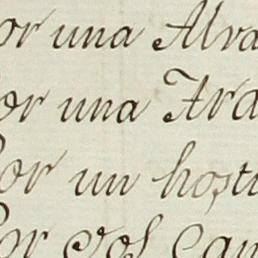 or una Alva
or una Fra
Por un hosti
Por vos Can